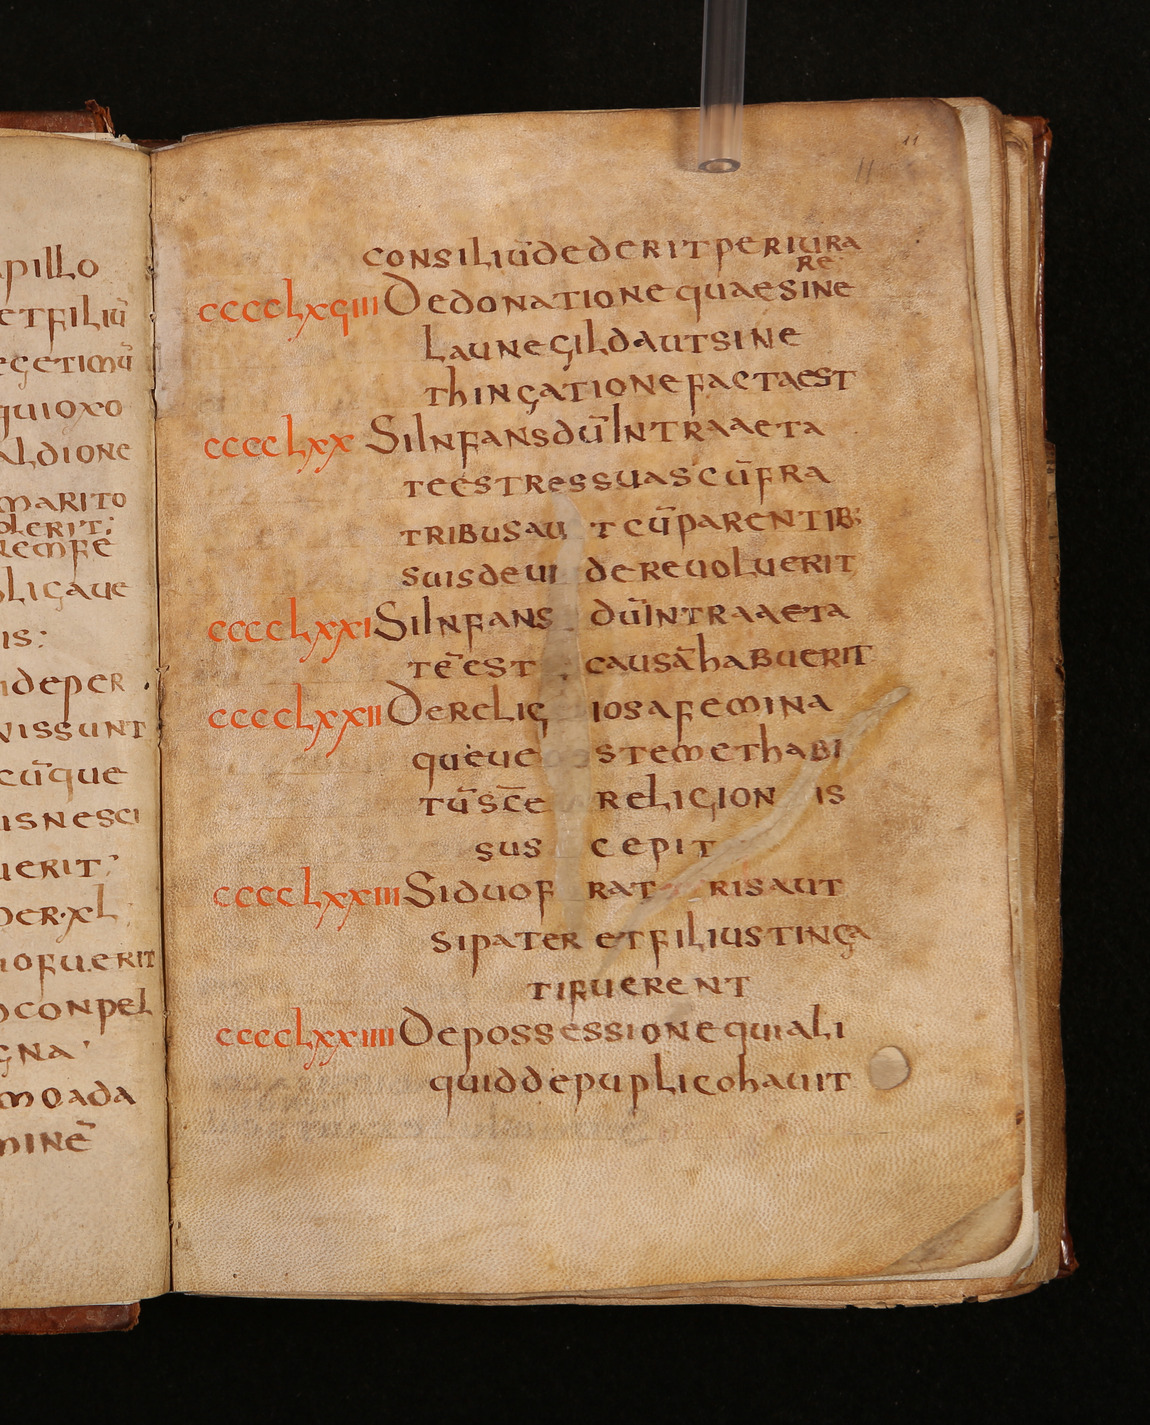 apillo
etfiliū
egetimū
quioxo
aldione
marito
olerit;
remfe
oligaue
is:
ideper
vissunt
cūque
isnesci
uerit;
per·xl;
iofuerit
oconpel
gna'
moada
minē
11
11
consiliūdederitperiura
re
cccclxviiii Dedonationequaesine
launegildautsine
thingationefactaest
cccclxx SiInfansdūIntraaeta
teestressuascūfra
tribusaut cūparentib;
suisdeui dereuoluerit
cccclxxi SiInfans dūIntraaeta
tēest causāhabuerit
cccclxxii Derelig iosafemina
queue stemethabi
tūsc̄e religionis
sus cepit
cccclxxiii Siduof ratrisaut
sipater etfiliustinga
tifuerent
cccclxxiiii Depossessionequiali
quiddepuplicohauit